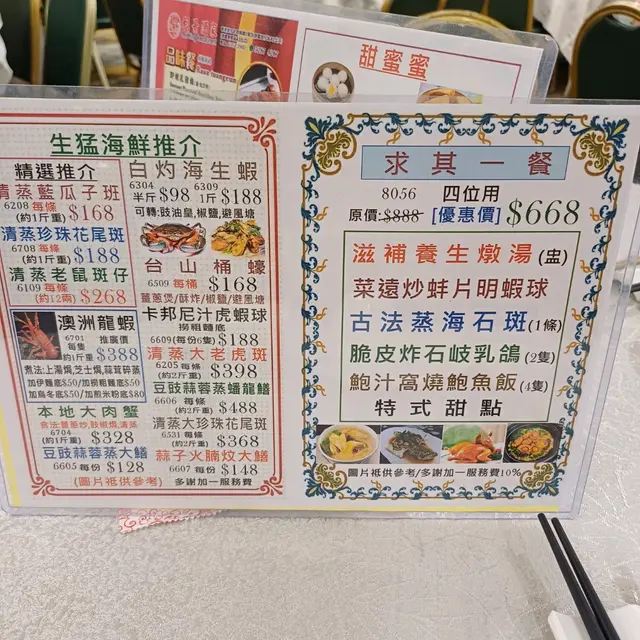 品味餐
甜蜜蜜
生猛海鮮推介
精選推介
清蒸藍瓜子班
6208 每條
(約1斤重) $168
清蒸珍珠花尾斑
6708 每條
(約1斤重) $188
清蒸老鼠斑仔
6109 每條
(約12兩) $268
澳洲龍蝦
6701 推廣價
每隻
約1斤重 $388
煮法:上湯焗,芝士焗,蒜茸蒸
加伊麵底$50/加撈粗麵底$50
加烏冬底$50/加煎米粉底$80
本地大肉蟹
食法:薑蔥炒,豉椒焗,清蒸
6704
(約1斤重) $328
豆豉蒜蓉蒸大鱔
6605 每份 $128
白灼海生蝦
6304 半斤 $98 6309 1斤 $188
可轉:豉油皇,椒鹽,避風塘
台山桶蠔
6509 每桶 $168
薑蔥煲/酥炸/椒鹽/避風塘
卡邦尼汁虎蝦球
撈粗麵底
6609(每份6隻) $188
清蒸大老虎斑
6205 每條
(約2斤重) $398
豆豉蒜蓉蒸蟠龍鱔
6606 每條
(約2斤重) $488
清蒸大珍珠花尾斑
6531 每條
(約2斤重) $368
蒜子火腩炆大鱔
6607 每份 $148
(圖片祗供參考) 多謝加一服務費
求其一餐
8056 四位用
原價:$888 [優惠價] $668
滋補養生燉湯(盅)
菜遠炒蚌片明蝦球
古法蒸海石斑(1條)
脆皮炸石岐乳鴿(2隻)
鮑汁窩燒鮑魚飯(4隻)
特式甜點
圖片祗供參考/多謝加一服務費10%